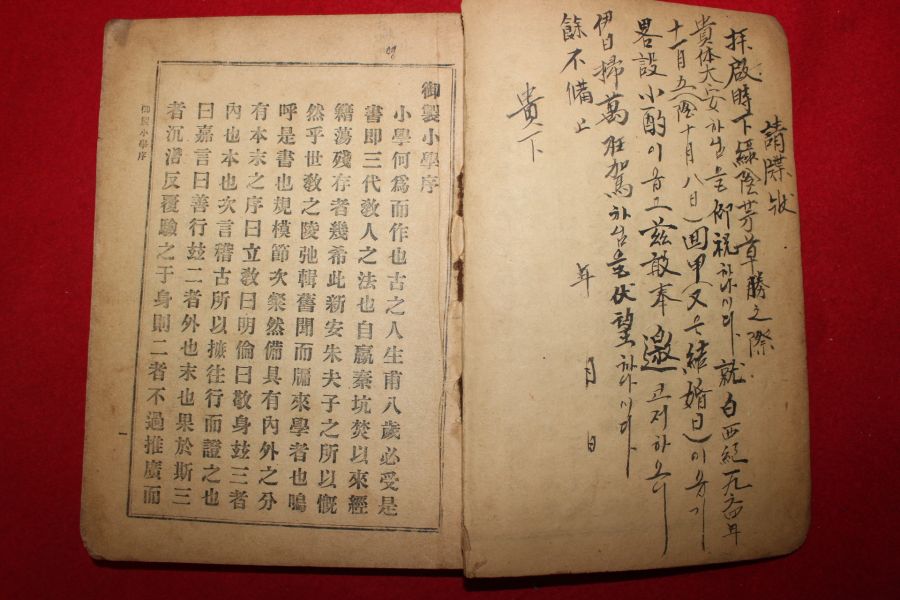 請牒狀
拜啟時下綠陰芳草勝之際
貴体大安하심을仰祝하나이다 就白西紀一九六四年
十一月五(陰十月八日)回甲(又은結婚日)이옵기
畧設小酌이옵고玆敢奉邀고저하오니
伊日掃萬枉駕하심을伏望하나이다
餘不備上
年 月 日
貴下
御製小學序
小學何爲而作也古之人生甫八歲必受是
書即三代敎人之法也自嬴秦坑焚以來經
籍蕩殘存者幾希此新安朱夫子之所以慨
然乎世敎之陵弛輯舊聞而牖來學者也嗚
呼是書也規模節次粲然備具有內外之分
有本末之序曰立敎曰明倫曰敬身玆三者
內也本也次言稽古所以摭往行而證之也
曰嘉言曰善行玆二者外也末也果於斯三
者沉潛反覆驗之于身則二者不過推廣而
御製小學序
一